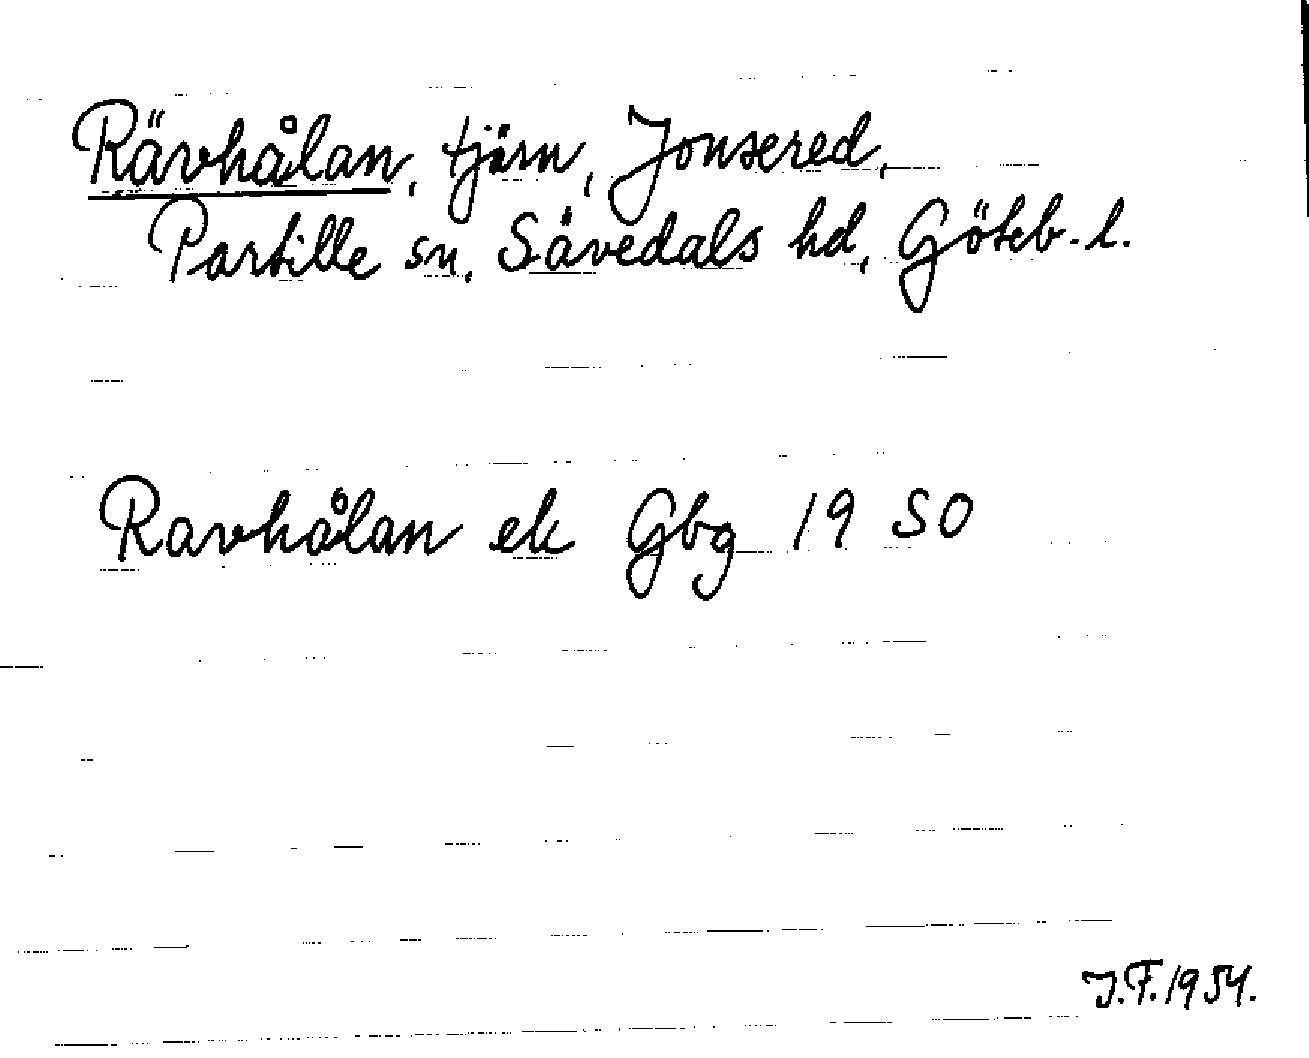 Rävhålan, tjärn, Jonsered,
Partille sn, Sävedals hd, Göteb-l.
Ravhålan ek Gbg 19 SO
J.F. 1954.